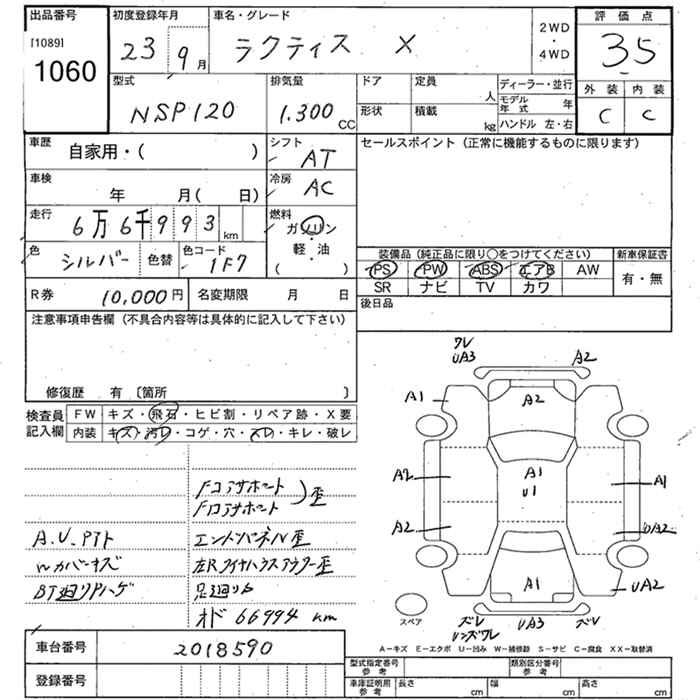 出品番号
[1089]
1060
初度登録年月
23 9月
車名・グレード
ラクティス X
2WD
・
4WD
評価点
3.5
外装 内装
C C
型式
NSP120
排気量
1.300 CC
ドア
形状
定員 人
積載 kg
ディーラー・並行
モデル年式 年
ハンドル 左・右
車歴
自家用・( )
シフト
AT
セールスポイント (正常に機能するものに限ります)
車検
年 月( 日)
冷房
AC
走行
6万6千993km
燃料
ガソリン
・
軽・油
( )
色
シルバー
色替
色コード
1F7
装備品 (純正品に限り○をつけてください) 新車保証書
PS PW ABS エアB AW
SR ナビ TV カワ
有・無
R券 10,000円 名変期限 月 日
後日品
注意事項申告欄 (不具合内容等は具体的に記入して下さい)
修復歴 有 〔箇所 〕
検査員
記入欄
FW キズ・飛石・ヒビ割・リペア跡・X要
内装 キズ・汚レ・コゲ・穴・スレ・キレ・破レ
Fコアサポート
Fロアサポート
)歪
A.U.PTト
エンドパネル歪
ハンカバーキズ
左Rタイヤハウスアウター歪
BT廻リPハゲ
足廻りサビ
オド 66994 km
ワレ
UA3
A2
A1
A2
A2
A1
U1
A1
A2
UA2
A1
UA2
スペア
ズレ
UA3
ズレ
A-キズ E-エクボ U-凹み W-補修跡 S-サビ C-腐食 XX-取替済
車台番号 2018590
登録番号
型式指定番号
参考
類別区分番号
参考
車庫証明用
参考
長さ cm
幅 cm
高さ cm